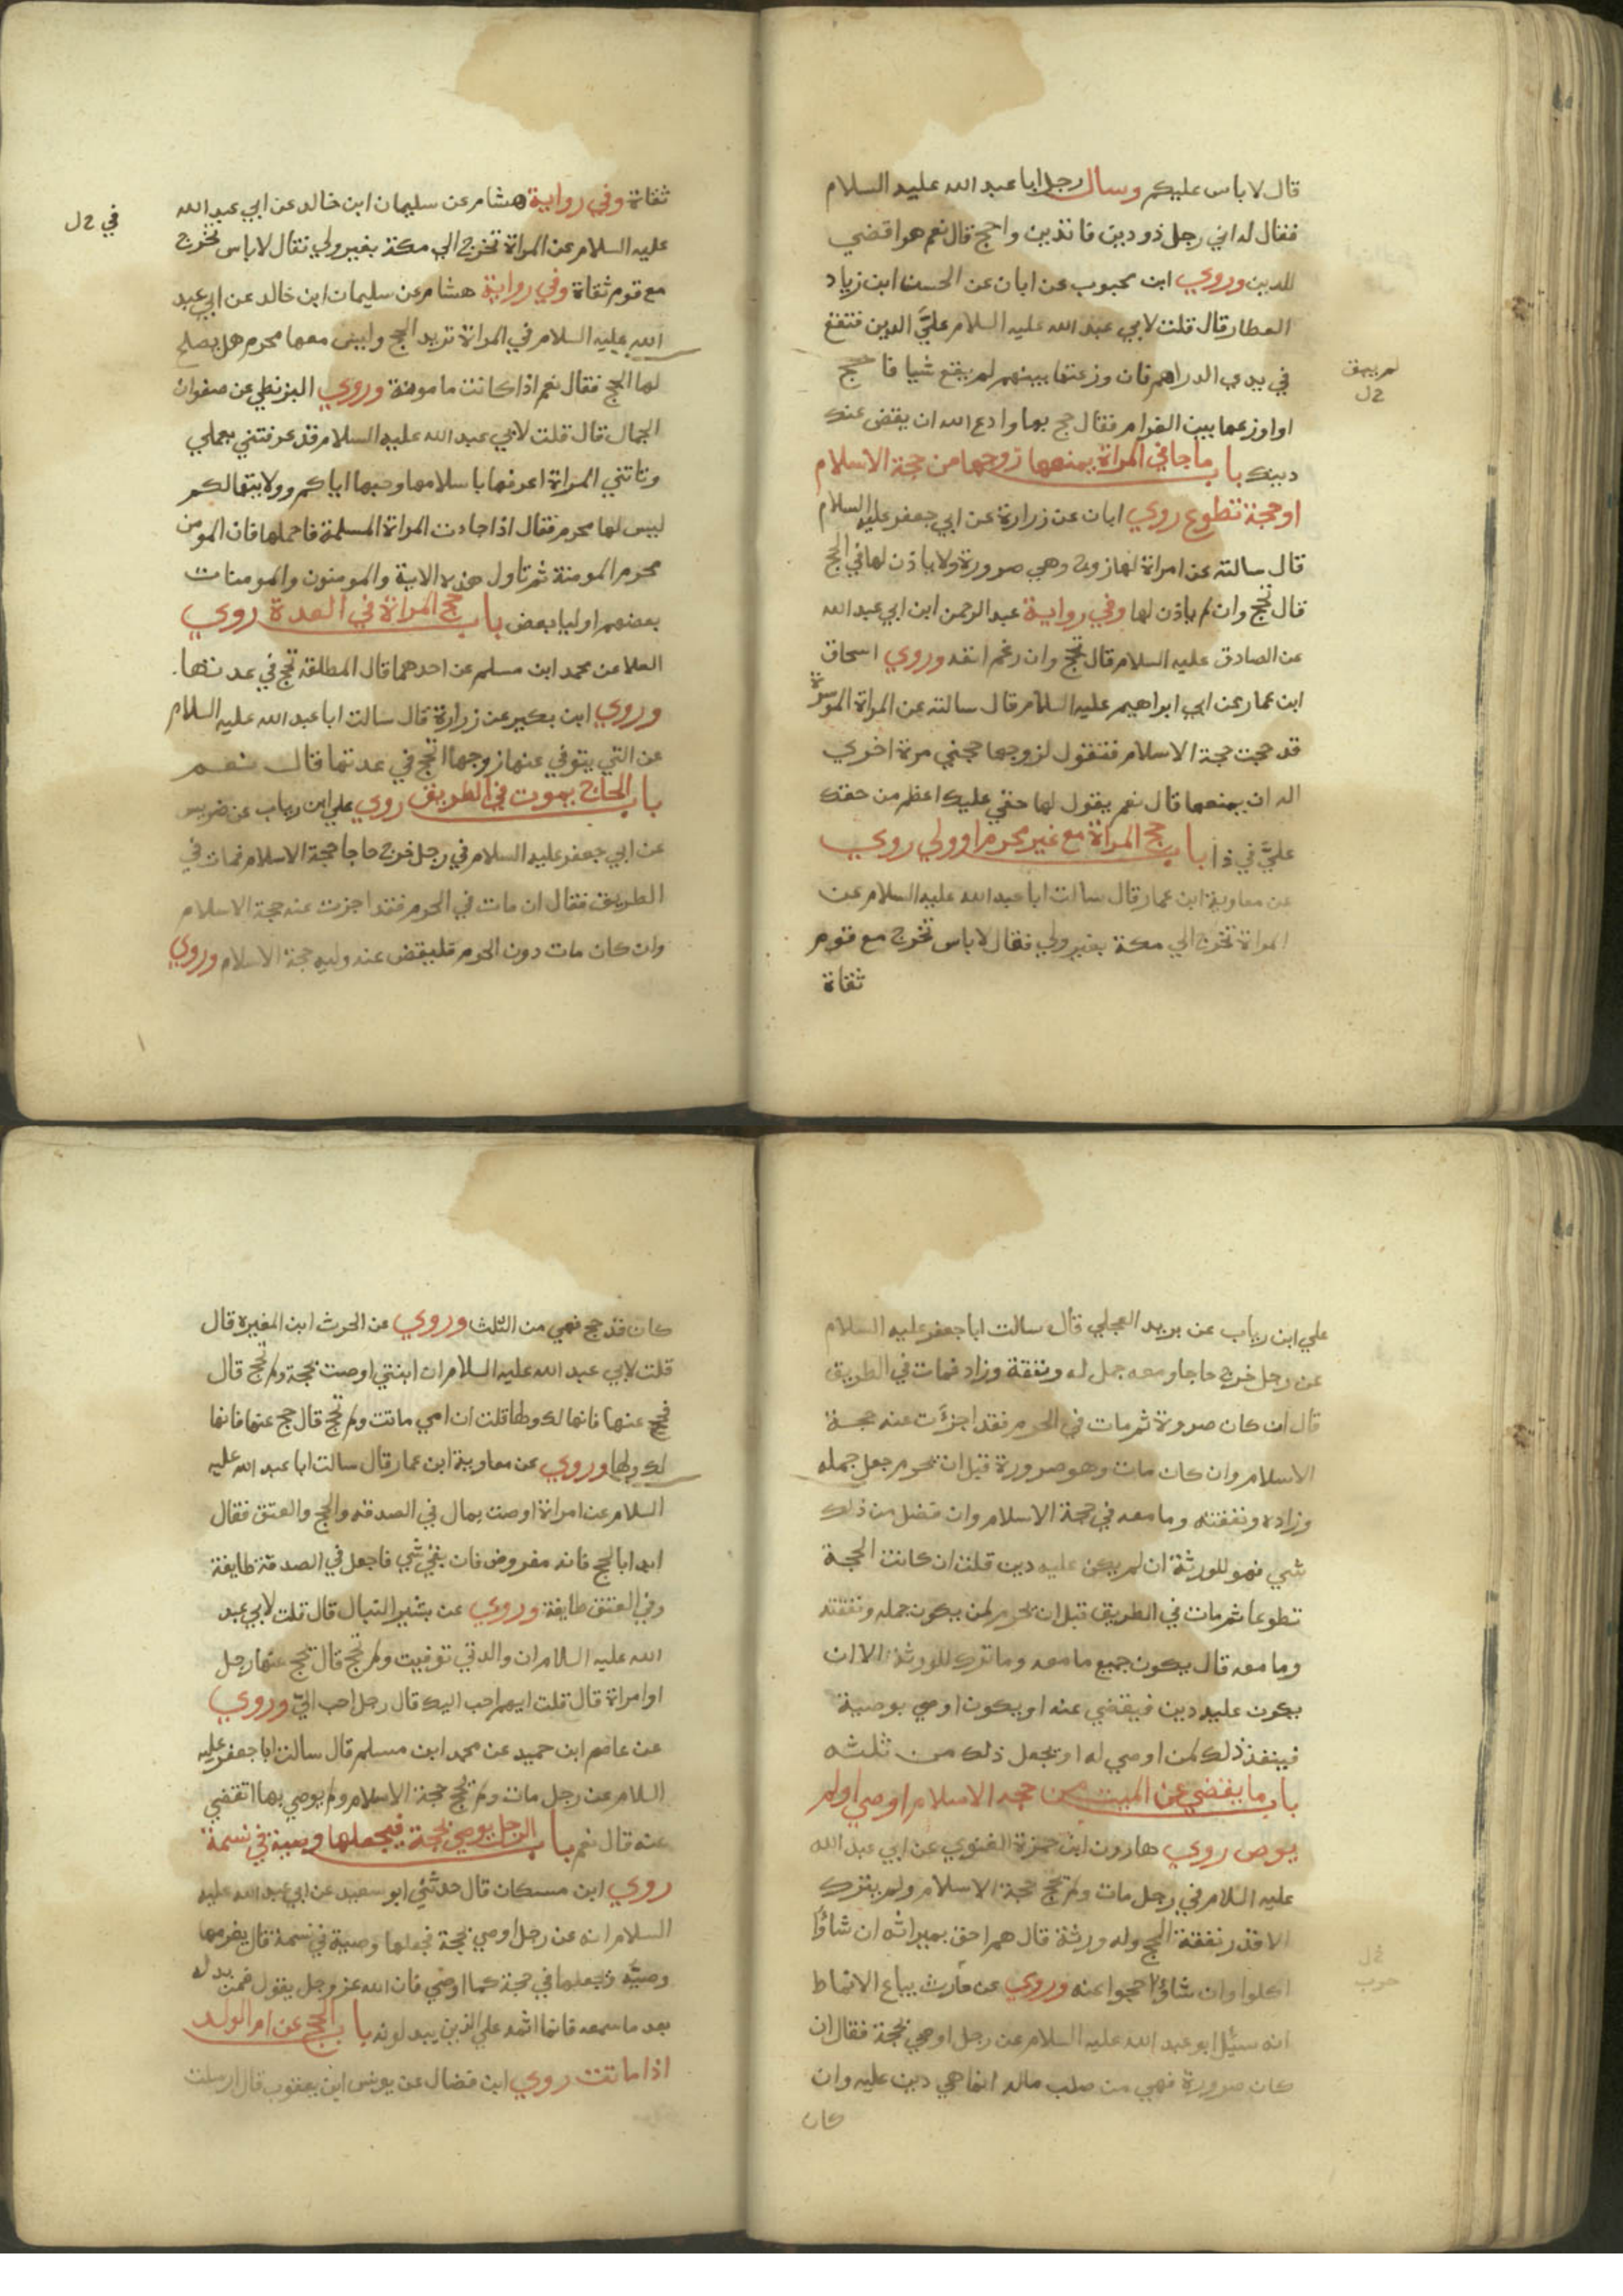 قال لا باس عليكم وسال رجل ابا عبد الله عليه السلام
فقال له اني رجل ذو دين فاتدين واحج قال نعم هو اقضي
للدين وروي ابن محبوب عن ابان عن الحسن ابن زياد
العطار قال قلت لابي عبد الله عليه السلام عليَّ الدين فتقع
في يدي الدراهم فان وزعتها بينهم لم يقع شيا فاحج
لم يبق
ﺣ ل
او اوزعها بين الغرام فقال حج بها وادع الله ان يقض عنك
دينك باب ما جا في المراة يمنعها زوجها من حجة الاسلام
او حجة تطوع روي ابان عن زرارة عن ابي جعفر عليه السلام
قال سالته عن امراة لها زوج وهي صرورة ولا ياذن لها في الحج
قال تحج وان لم ياذن لها وفي رواية عبد الرحمن ابن ابي عبد الله
عن الصادق عليه السلام قال تحج وان رغم انفه وروي اسحاق
ابن عمار عن ابي ابراهيم عليه السلام قال سالته عن المراة الموسرة
قد حجت حجة الاسلام فتقول لزوجها حجني مرة اخري
اله ان يمنعها قال نعم يقول لها حقي عليك اعظم من حقك
عليَّ في ذا باب حج المراة مع غير محرم او ولي روي
عن معاوية ابن عمار قال سالت ابا عبد الله عليه السلام عن
المراة تخرج الي مكة بغير ولي فقال لا باس تخرج مع قوم
ثقاة
ثقاة وفي رواية هشام عن سليمان ابن خالد عن ابي عبد الله
في ﺣ ل
عليه السلام عن المراة تخرج الي مكة بغير ولي فقال لا باس تخرج
مع قوم ثقاة وفي رواية هشام عن سليمان ابن خالد عن ابي عبد
الله عليه السلام في المراة تريد الحج وليس معها محرم هل يصلح
لها الحج فقال نعم اذا كانت مامونة وروي البزنطي عن صفوان
الجمال قال قلت لابي عبد الله عليه السلام قد عرفتني بعملي
وتاتني المراة اعرفها باسلامها وحبها اياكم وولايتها لكم
ليس لها محرم فقال اذا جاءت المراة المسلمة فاحملها فان المومن
محرم المومنة ثم تاول هذه الاية والمومنون والمومنات
بعضهم اوليا بعض باب حج المراة في العدة روي
العلا عن محمد ابن مسلم عن احدهما قال المطلقة تحج في عدتها.
وروي ابن بكير عن زرارة قال سالت ابا عبد الله عليه السلام
عن التي يتوفي عنها زوجها اتحج في عدتها قال نعم
باب الحاج يموت في الطريق روي علي ابن رياب عن ضريس
عن ابي جعفر عليه السلام في رجل خرج حاجا حجة الاسلام فمات في
الطريق فقال ان مات في الحرم فقد اجزت عنه حجة الاسلام
وان كان مات دون الحرم فليقض عنه وليه حجة الاسلام وروي
علي ابن رياب عن بريد العجلي قال سالت ابا جعفر عليه السلام
عن رجل خرج حاجا ومعه جمل له ونفقة وزاد فمات في الطريق
قال ان كان صرورة ثم مات في الحرم فقد اجزءت عنه حجة
الاسلام وان كان مات وهو صرورة قبل ان يحرم جعل جمله
وزاده ونفقته وما معه في حجة الاسلام وان فضل من ذلك
شي فهو للورثة ان لم يكن عليه دين قلت ان كانت الحجة
تطوعا ثم مات في الطريق قبل ان يحرم لمن يكون جمله ونفقته
وما معه قال يكون جميع ما معه وما ترك للورثة الا ان
يكون عليه دين فيقضي عنه او يكون اوصي بوصية
فينفذ ذلك لمن اوصي له او يجعل ذلك من ثلثه
باب ما يقضي عن الميت من حجة الاسلام اوصي او لم
يوص روي هارون ابن حمزة الغنوي عن ابي عبد الله
عليه السلام في رجل مات ولم يحج حجة الاسلام ولم يترك
الا قدر نفقة الحج وله ورثة قال هم احق بميراثه ان شاؤا
اكلوا وان شاؤا احجوا عنه وروي عن حارث بياع الانماط
انه سئل ابو عبد الله عليه السلام عن رجل اوصي بحجة فقال ان
كان صرورة فهي من صلب ماله انما هي دين عليه وان
كان
كان قد حج فهي من الثلث وروي عن الحرث ابن المغيرة قال
قلت لابي عبد الله عليه السلام ان ابنتي اوصت بحجة ولم تحج قال
فحج عنها فانها لك ولها قلت ان امي ماتت ولم تحج قال حج عنها فانها
لك ولها وروي عن معاوية ابن عمار قال سالت ابا عبد الله عليه
السلام عن امراة اوصت بمال في الصدقه والحج والعتق فقال
ابدا بالحج فانه مفروض فان بقي شي فاجعل في الصدقة طايفة
وفي العتق طايفة وروي عن بشير النبال قال قلت لابي عبد
الله عليه السلام ان والدتي توفيت ولم تحج قال تحج عنها رجل
او امراة قال قلت ايهم احب اليك قال رجل احب اليّ وروي
عن عاصم ابن حميد عن محمد ابن مسلم قال سالت ابا جعفر عليه
السلام عن رجل مات ولم يحج حجة الاسلام ولم يوصي بها اتقضي
عنه قال نعم باب الرجل يوصي بحجة فيجعلها وصية في نسمة
روي ابن مسكان قال حدثني ابو سعيد عن ابي عبد الله عليه
السلام انه عن رجل اوصي بحجة فجعلها وصية في نسمة قال يغرمها
وصيّه ويجعلها في حجة كما اوصي فان الله عز وجل يقول فمن بدله
بعد ما سمعه فانما اثمه علي الذين يبدلونه باب الحج عن ام الولد
اذا ماتت روي ابن فضال عن يونس ابن يعقوب قال ارسلت